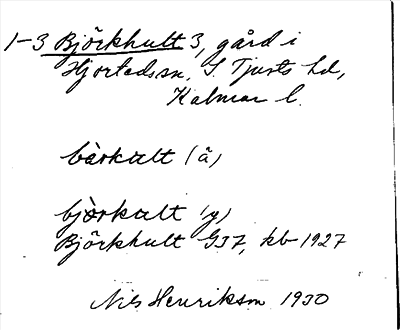 1-3 Björkhult 3, gård i
Hjorteds sn, S. Tjusts hd,
Kalmar l.
bàrkult (ä)
bjòrkult (y)
Björkhult G37, kb 1927
Nils Henrikson 1930